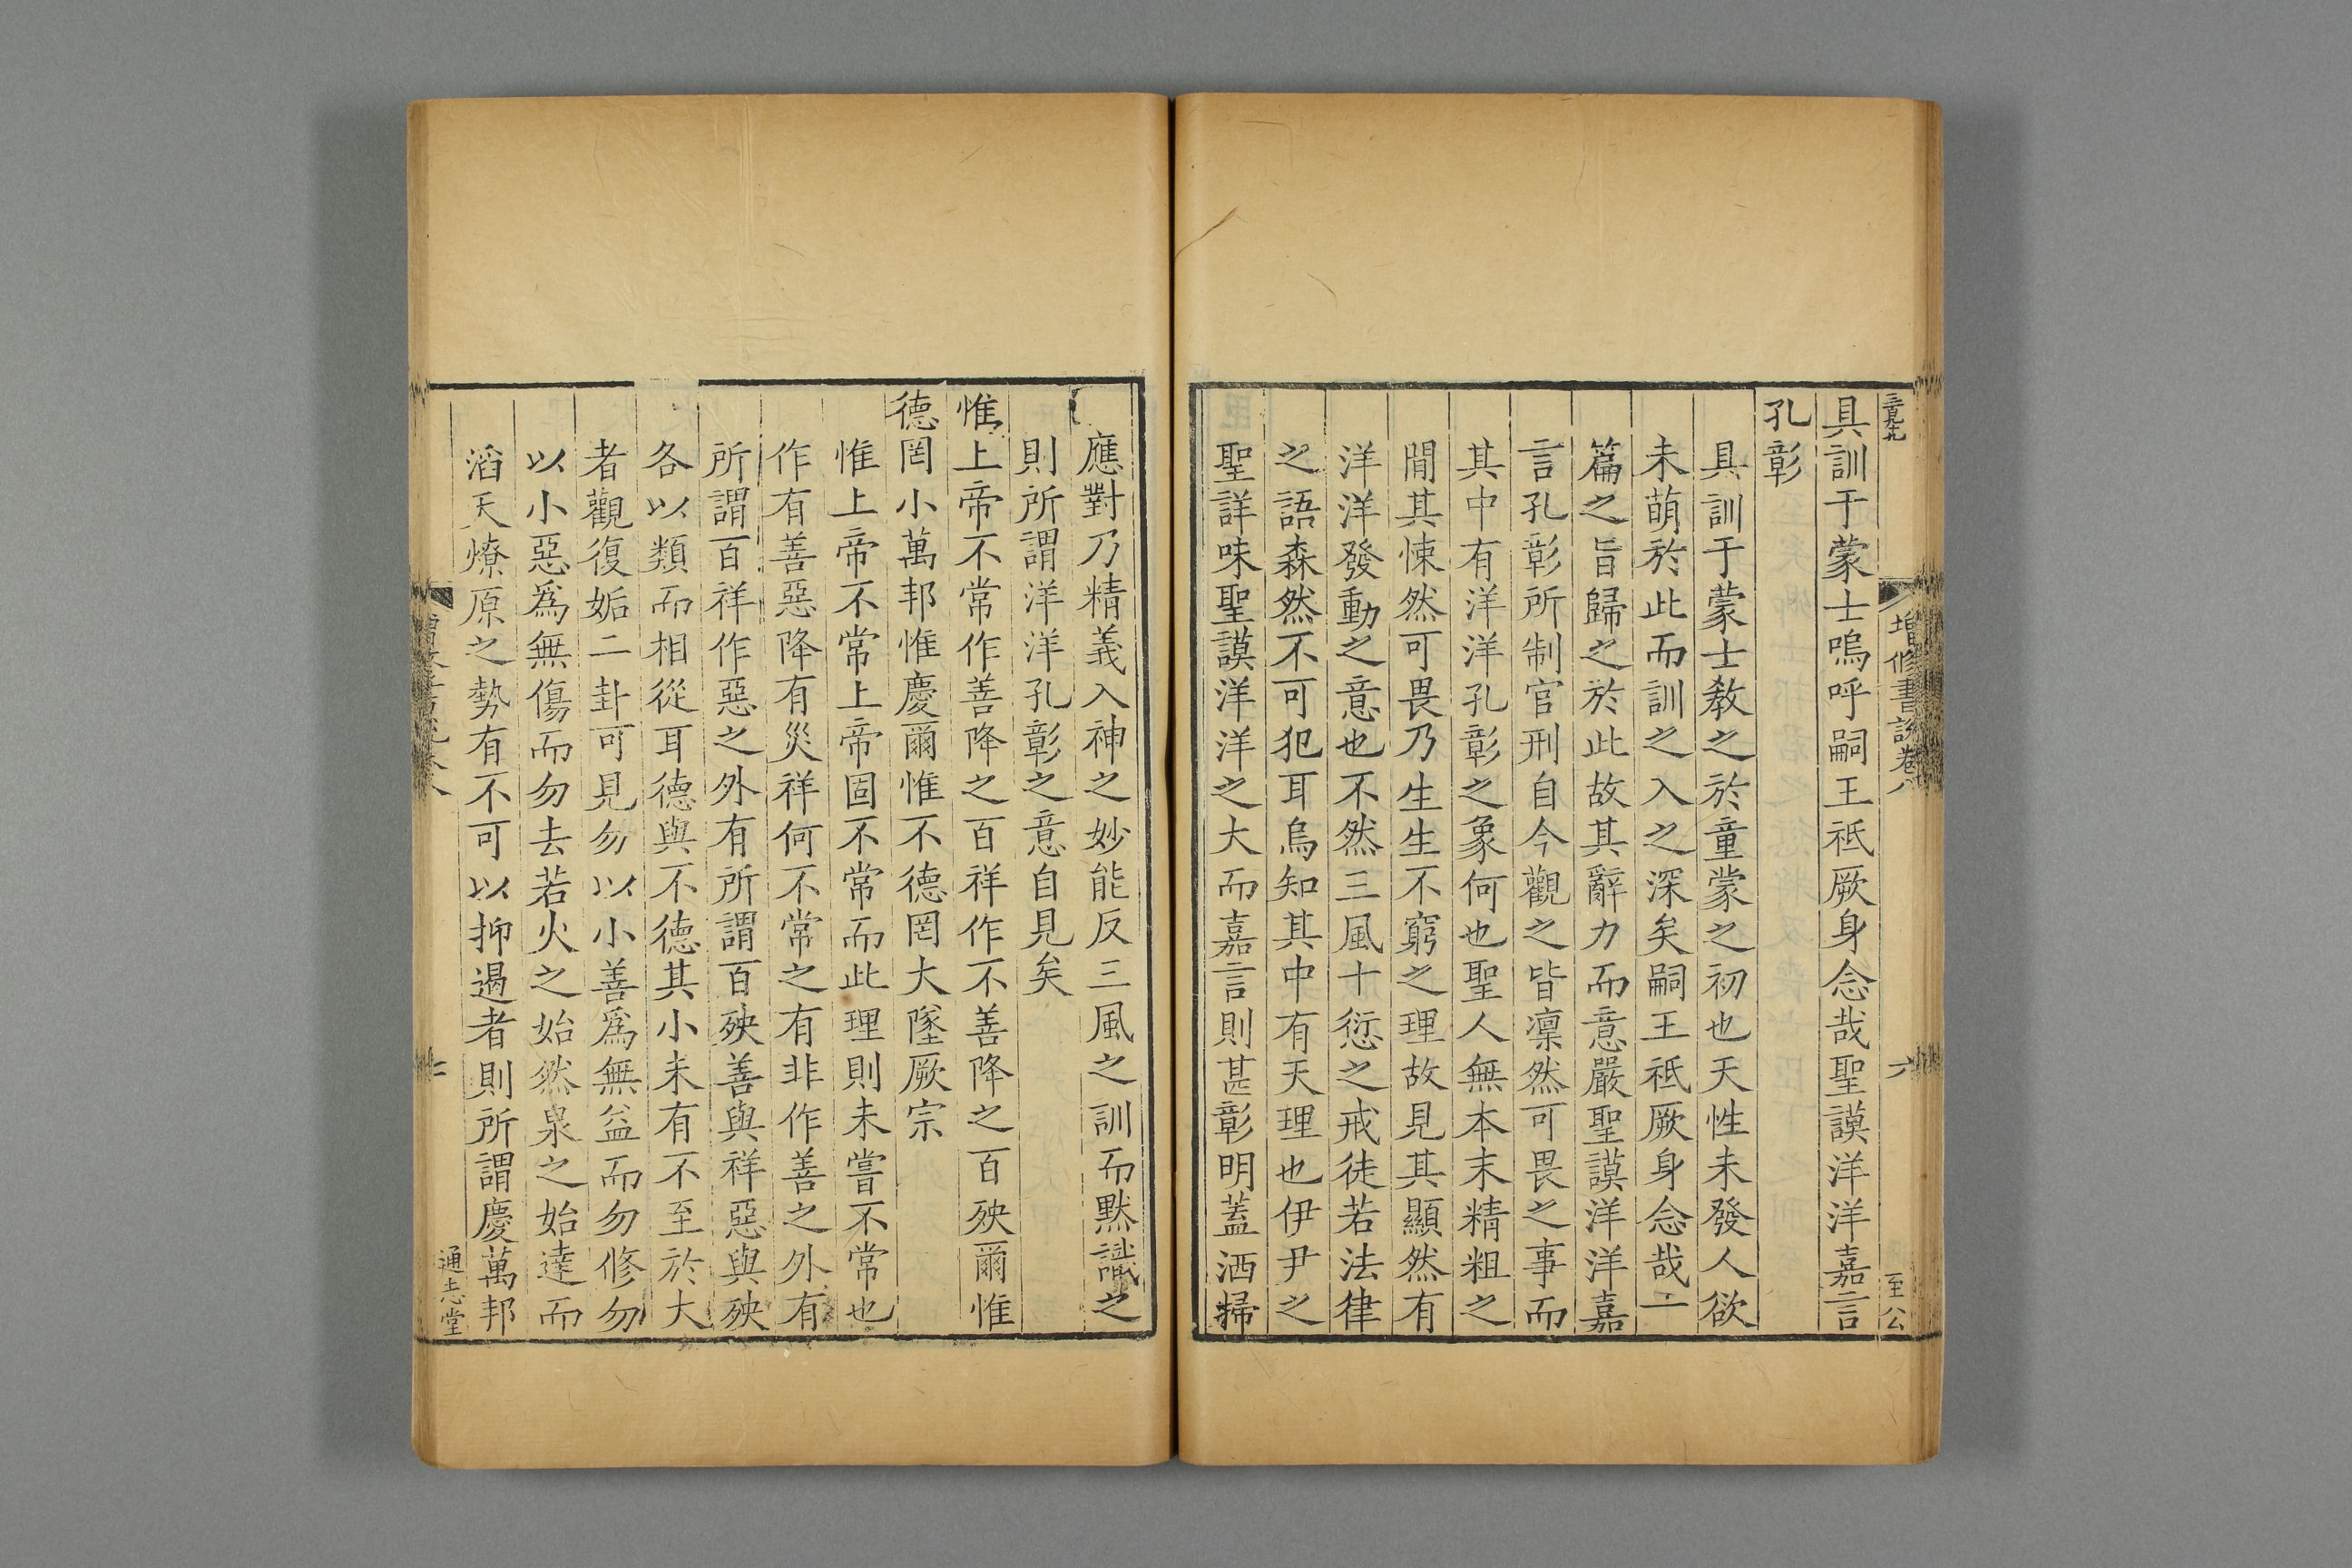 增修書說卷八
六
至公
具訓于蒙士嗚呼嗣王祗厥身念哉聖謨洋洋嘉言
孔彰
具訓于蒙士教之於童蒙之初也天性未發人欲
未萌於此而訓之入之深矣嗣王祗厥身念哉一
篇之旨歸之於此故其辭力而意嚴聖謨洋洋嘉
言孔彰所制官刑自今觀之皆凛然可畏之事而
其中有洋洋孔彰之象何也聖人無本末精粗之
閒其悚然可畏乃生生不窮之理故見其顯然有
洋洋發動之意也不然三風十愆之戒徒若法律
之語森然不可犯耳烏知其中有天理也伊尹之
聖詳味聖謨洋洋之大而嘉言則甚彰明蓋洒掃
應對乃精義入神之妙能反三風之訓而默識之
則所謂洋洋孔彰之意自見矣
惟上帝不常作善降之百祥作不善降之百殃爾惟
德罔小萬邦惟慶爾惟不德罔大墜厥宗
惟上帝不常上帝固不常而此理則未嘗不常也
作有善惡降有災祥何不常之有非作善之外有
所謂百祥作惡之外有所謂百殃善與祥惡與殃
各以類而相從耳德與不德其小未有不至於大
者觀復姤二卦可見勿以小善爲無益而勿修勿
以小惡爲無傷而勿去若火之始然泉之始達而
滔天燎原之勢有不可以抑遏者則所謂慶萬邦
通志堂